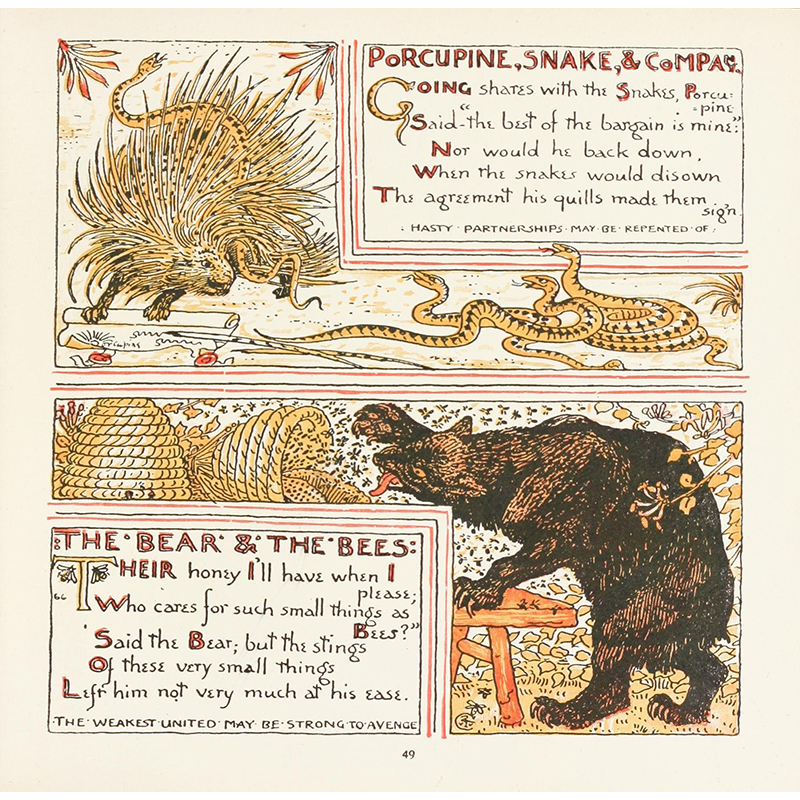 PORCUPINE, SNAKE, & COMPAY.
GOING shares with the Snakes, Porcu-
pine
Said-"the best of the bargain is mine:"
Nor would he back down,
When the snakes would disown
The agreement his quills made them
sign.
: HASTY · PARTNERSHIPS · MAY · BE · REPENTED · OF :
:THE · BEAR & THE · BEES:
"THEIR honey I'll have when I
please;
Who cares for such small things as
Bees?"
Said the Bear; but the stings
Of these very small things
Left him not very much at his ease.
THE · WEAKEST · UNITED · MAY · BE · STRONG · TO · AVENGE
49